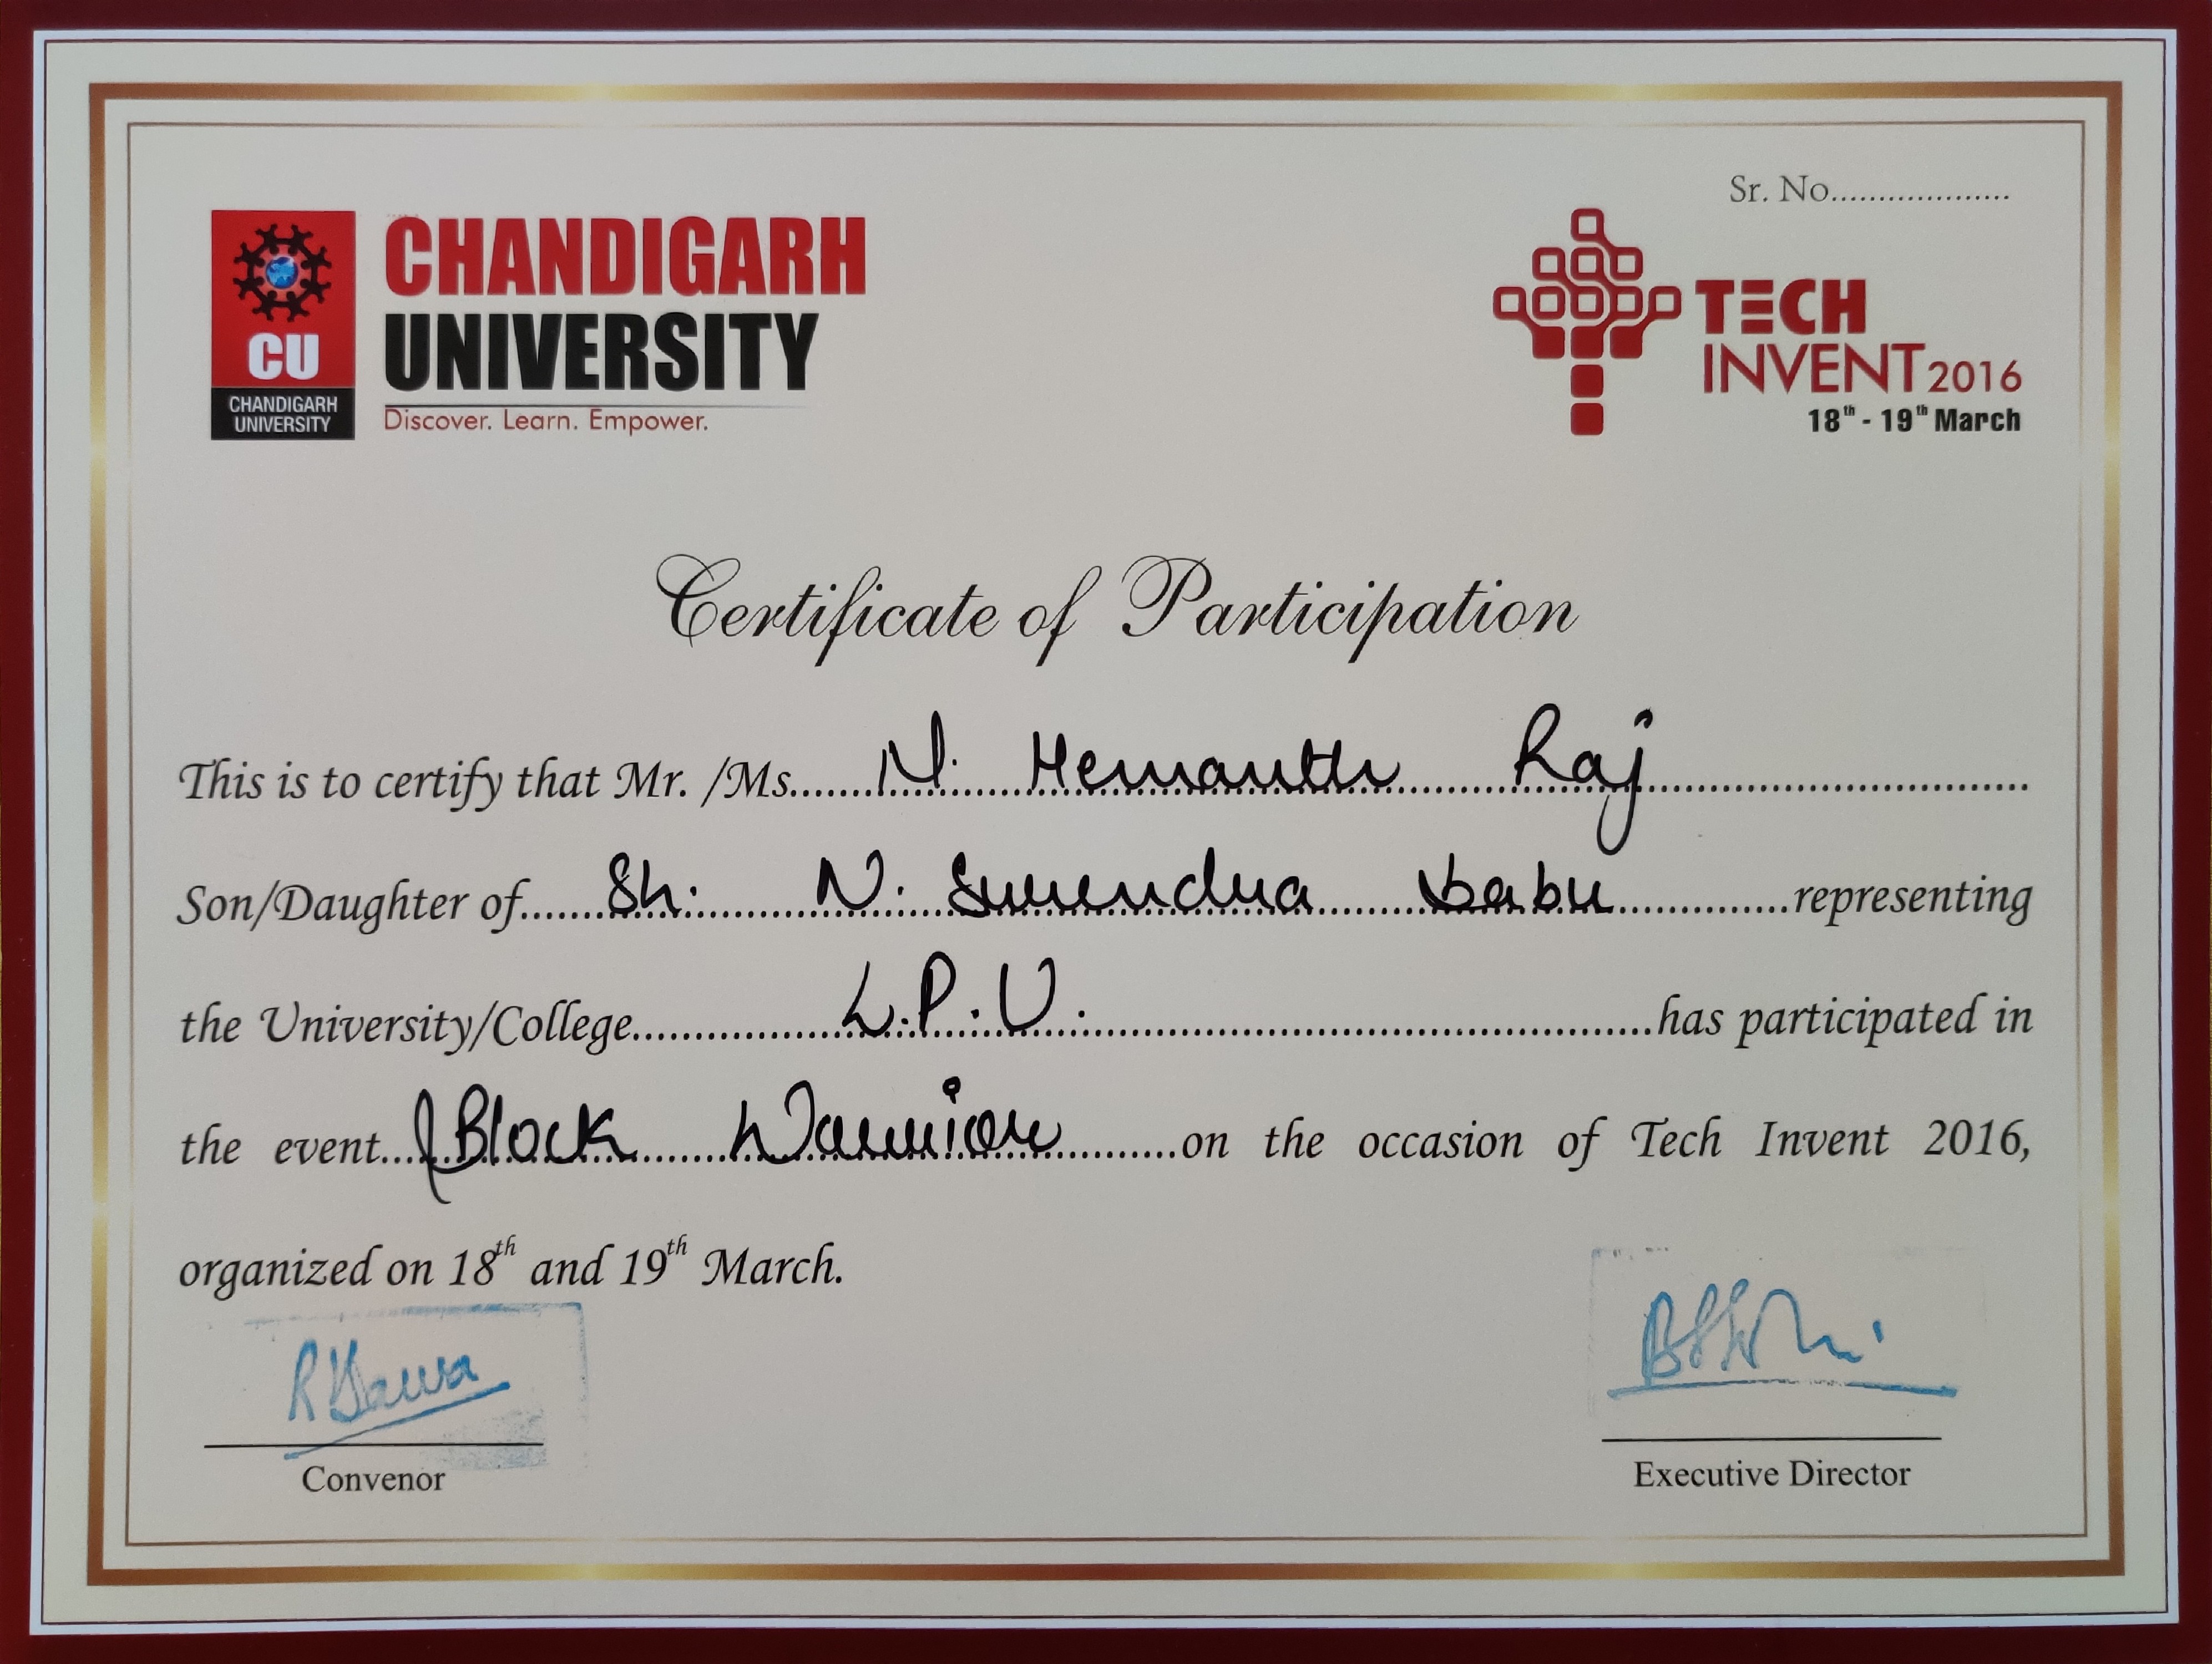 Sr. No...................
CU
CHANDIGARH
UNIVERSITY
CHANDIGARH
UNIVERSITY
Discover. Learn. Empower.
TECH
INVENT 2016
18th - 19th March
Certificate of Participation
This is to certify that Mr. /Ms. N. Hemanth Raj
Son/Daughter of Sh. N. Surendra babu representing
the University/College L.P.U. has participated in
the event Block Warrior on the occasion of Tech Invent 2016,
organized on 18th and 19th March.
Convenor
Executive Director